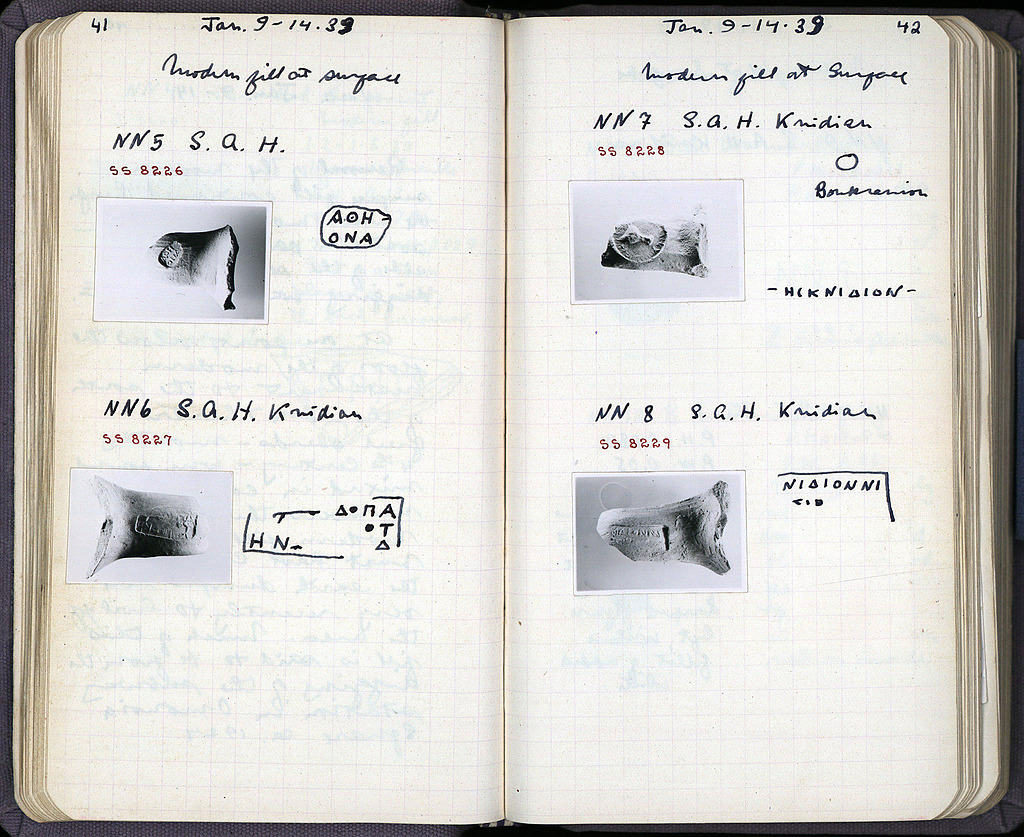 41 Jan. 9-14.39
Modern fill at surface
NN5 S. A. H.
SS 8226
ΑΘΗ-
ΟΝΑ
NN6 S. A. H. Knidian
SS 8227
ΔΟΠΑ
ΟΤ
ΗΝ
Δ
Jan. 9-14.39 42
Modern fill at Surface
NN7 S. A. H. Knidian
SS 8228
Boukranion
-ΗΙΚΝΙΔΙΟΝ-
NN 8 S. A. H. Knidian
SS 8229
ΝΙΔΙΟΝΝΙ